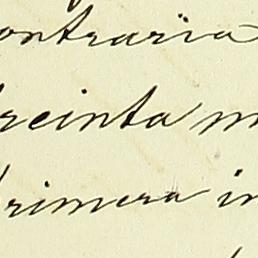 ontraria
reinta m
rimera in